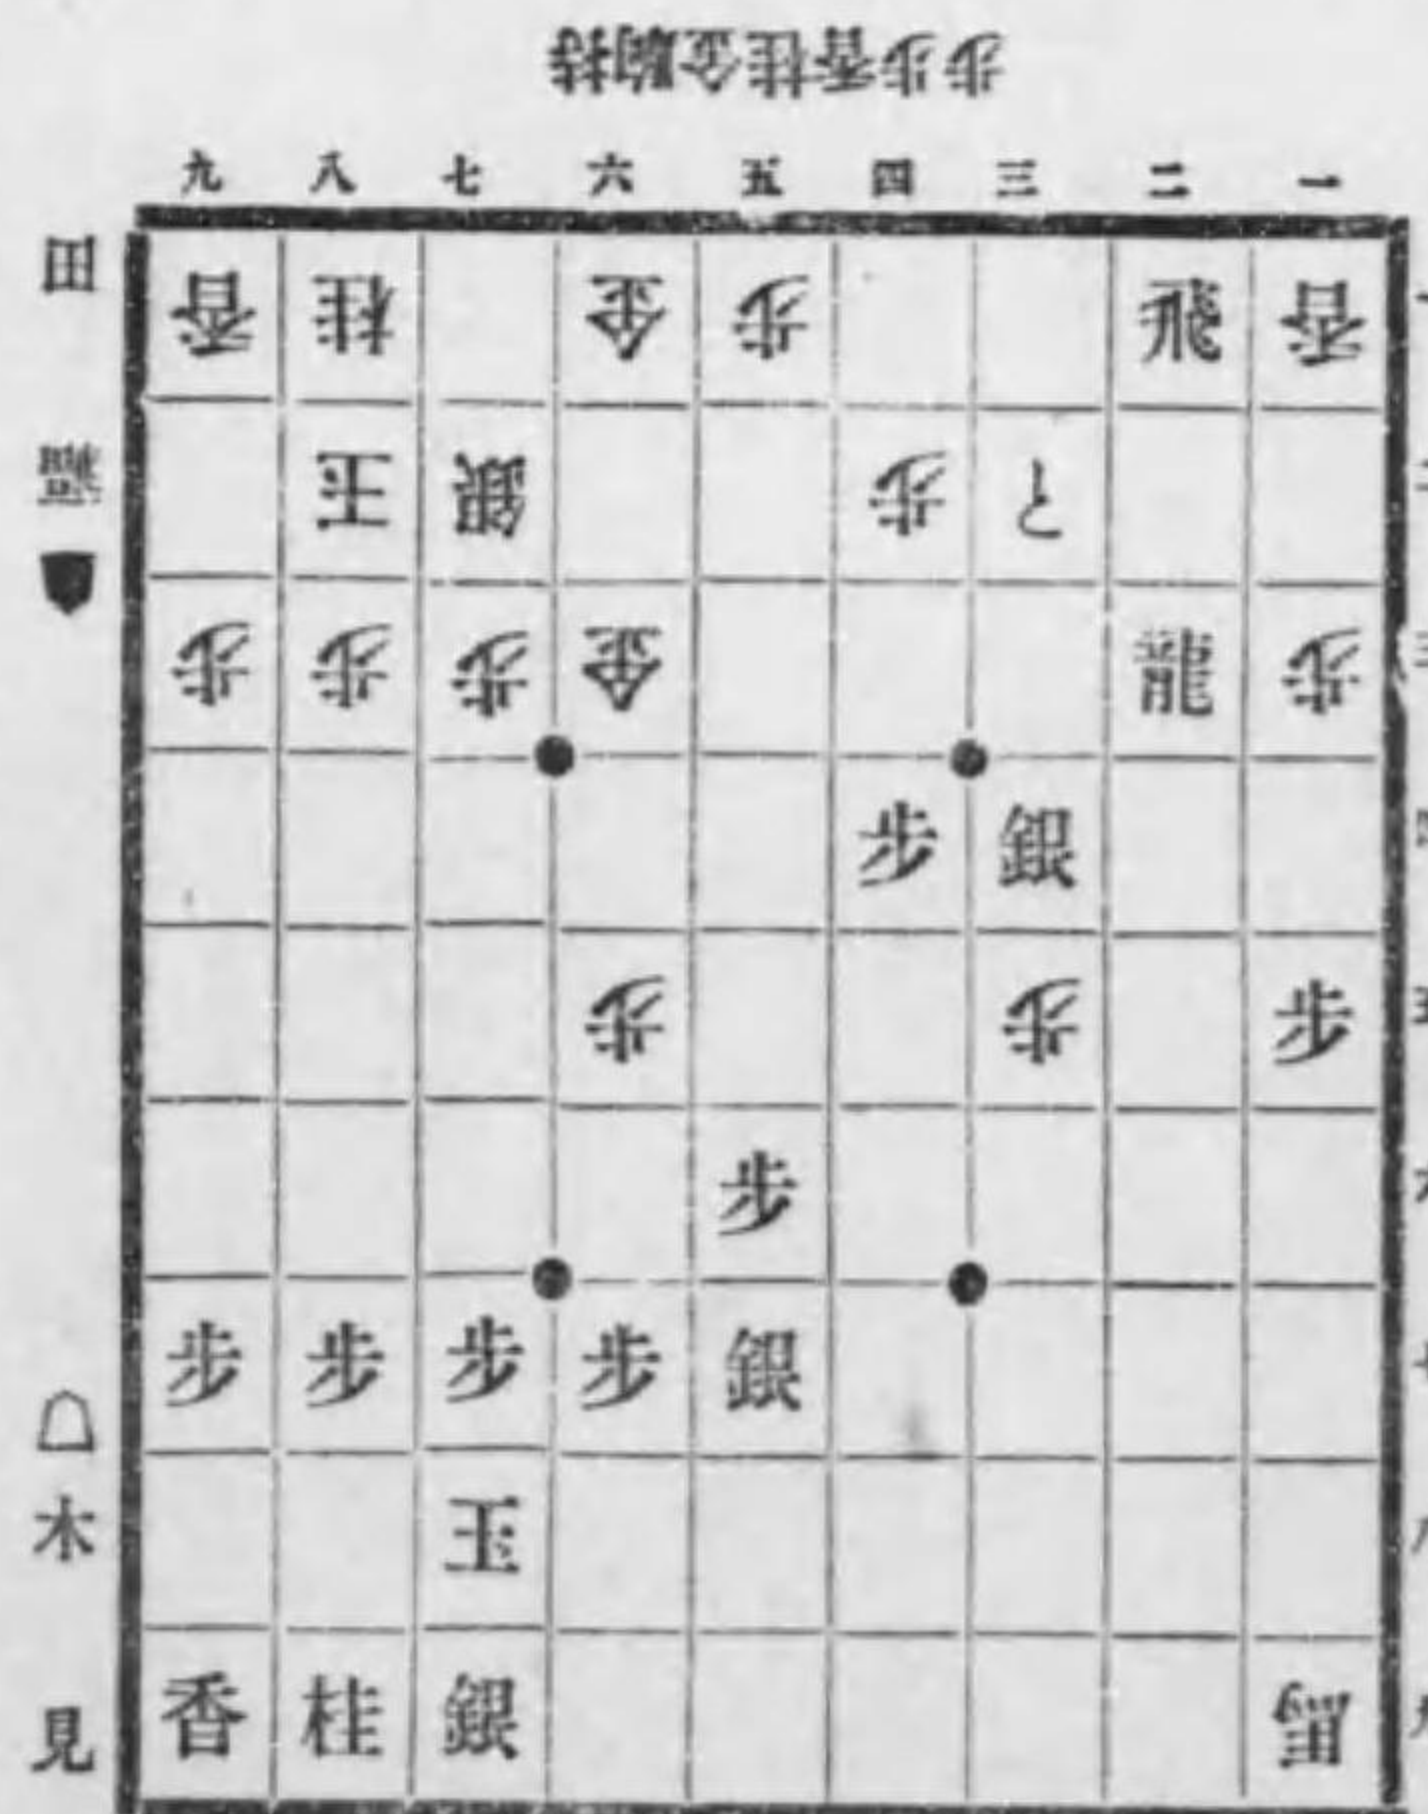 持駒金桂香歩歩
九 八 七 六 五 四 三 二 一
香 桂 金 歩 飛 香
玉 銀 歩 と
歩 歩 歩 金 龍 歩
歩 銀
歩 歩 歩
歩
歩 歩 歩 歩 銀
玉
香 桂 銀 馬
福田
木見